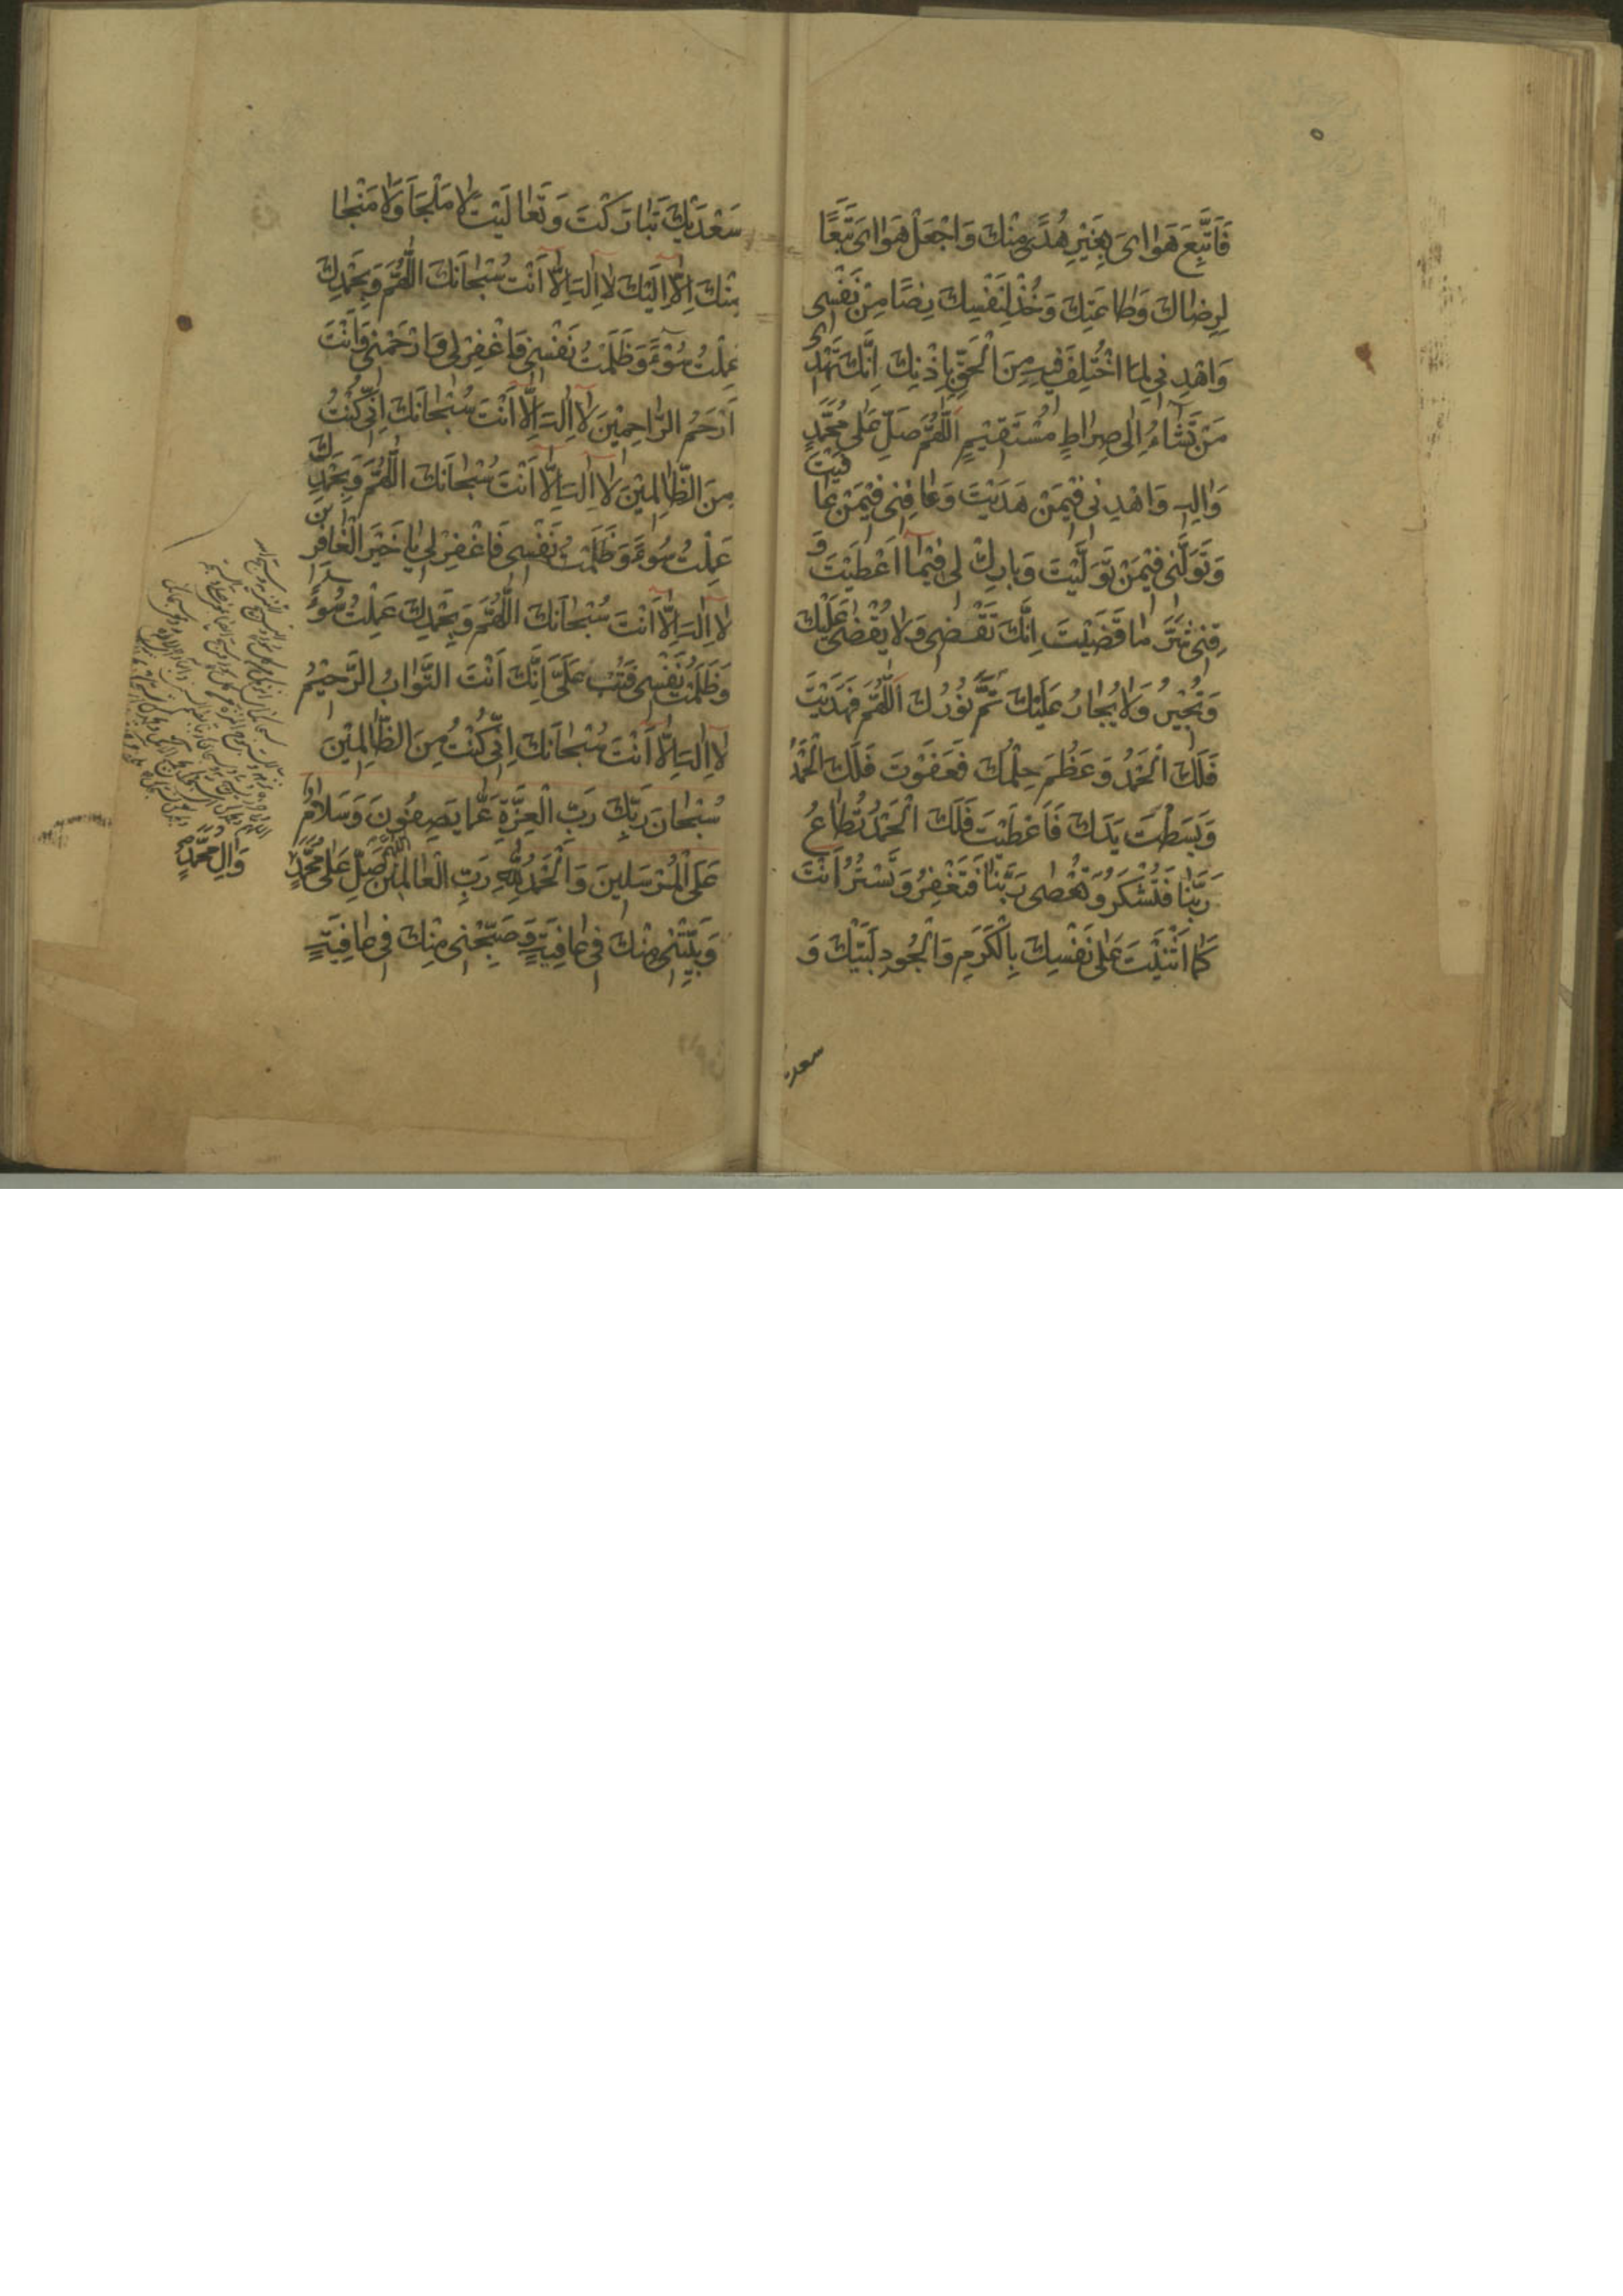 فَاَتَّبِعَ هَوٰاىَ بِغَيْرِ هُدًى مِنْكَ وَاجْعَلْ هَوٰاىَ تَبَعًا
لِرِضٰاكَ وَطٰاعَتِكَ وَخُذْ لِنَفْسِكَ رِضًا مِنْ نَفْسِى
وَاهْدِنِي لِمَا اخْتُلِفَ فِيهِ مِنَ الْحَقِّ بِاِذْنِكَ اِنَّكَ تَهْدِى
مَنْ تَشٰاءُ اِلٰى صِرٰاطٍ مُسْتَقِيْمٍ اَللّٰهُمَّ صَلِّ عَلٰى مُحَمَّدٍ
وَاٰلِهِ وَاهْدِنِى فِيْمَنْ هَدَيْتَ وَعٰافِنِى فِيْمَنْ عٰافَيْتَ
وَتَوَلَّنِى فِيْمَنْ تَوَلَّيْتَ وَبٰارِكْ لِى فِيْمٰا اَعْطَيْتَ وَ
قِنِى شَرَّ مٰا قَضَيْتَ اِنَّكَ تَقْضِى وَلٰا يُقْضٰى عَلَيْكَ
وَتُجِيْرُ وَلٰا يُجٰارُ عَلَيْكَ تَمَّ نُوْرُكَ اَللّٰهُمَّ فَهَدَيْتَ
فَلَكَ الْحَمْدُ وَعَظُمَ حِلْمُكَ فَعَفَوْتَ فَلَكَ الْحَمْدُ
وَبَسَطْتَ يَدَكَ فَاَعْطَيْتَ فَلَكَ الْحَمْدُ تُطٰاعُ
رَبَّنٰا فَتَشْكُرُ وَتُعْصٰى رَبَّنٰا فَتَغْفِرُ وَتَسْتُرُ اَنْتَ
كَمٰا اَثْنَيْتَ عَلٰى نَفْسِكَ بِالْكَرَمِ وَالْجُودِ لَبَّيْكَ وَ
سعديك
سَعْدَيْكَ تَبٰارَكْتَ وَتَعٰالَيْتَ لٰا مَلْجَاَ وَلٰا مَنْجٰا
مِنْكَ اِلّٰا اِلَيْكَ لٰا اِلٰهَ اِلّٰا اَنْتَ سُبْحٰانَكَ اللّٰهُمَّ وَبِحَمْدِكَ
عَمِلْتُ سُوْءً وَظَلَمْتُ نَفْسِى فَاغْفِرْ لِى وَارْحَمْنِى وَاَنْتَ
اَرْحَمُ الرّٰاحِمِيْنَ لٰا اِلٰهَ اِلّٰا اَنْتَ سُبْحٰانَكَ اِنِّى كُنْتُ
مِنَ الظّٰالِمِيْنَ لٰا اِلٰهَ اِلّٰا اَنْتَ سُبْحٰانَكَ اللّٰهُمَّ وَبِحَمْدِكَ
عَمِلْتُ سُوْءً وَظَلَمْتُ نَفْسِى فَاغْفِرْ لِى يٰا خَيْرَ الْغٰافِرِيْنَ
لٰا اِلٰهَ اِلّٰا اَنْتَ سُبْحٰانَكَ اللّٰهُمَّ وَبِحَمْدِكَ عَمِلْتُ سُوْءً
وَظَلَمْتُ نَفْسِى فَتُبْ عَلَىَّ اِنَّكَ اَنْتَ التَّوّٰابُ الرَّحِيْمُ
لٰا اِلٰهَ اِلّٰا اَنْتَ سُبْحٰانَكَ اِنِّى كُنْتُ مِنَ الظّٰالِمِيْنَ
سُبْحٰانَ رَبِّكَ رَبِّ الْعِزَّةِ عَمّٰا يَصِفُونَ وَسَلٰامٌ
عَلَى الْمُرْسَلِينَ وَالْحَمْدُ لِلّٰهِ رَبِّ الْعٰالَمِينَ اللّٰهُمَّ صَلِّ عَلٰى مُحَمَّدٍ
وَاٰلِ مُحَمَّدٍ
وَبَيِّتْنِى مِنْكَ فِى عٰافِيَةٍ وَصَبِّحْنِى مِنْكَ فِى عٰافِيَةٍ